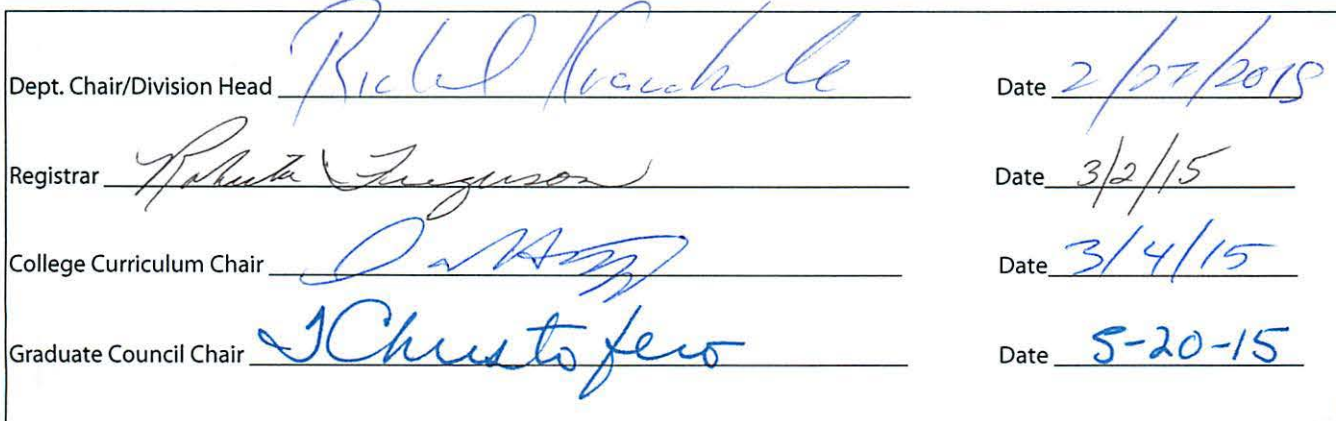 Dept. Chair/Division Head Date 2/27/2015
Registrar Roberta Ferguson Date 3/2/15
College Curriculum Chair Date 3/4/15
Graduate Council Chair TChristofero Date 5-20-15